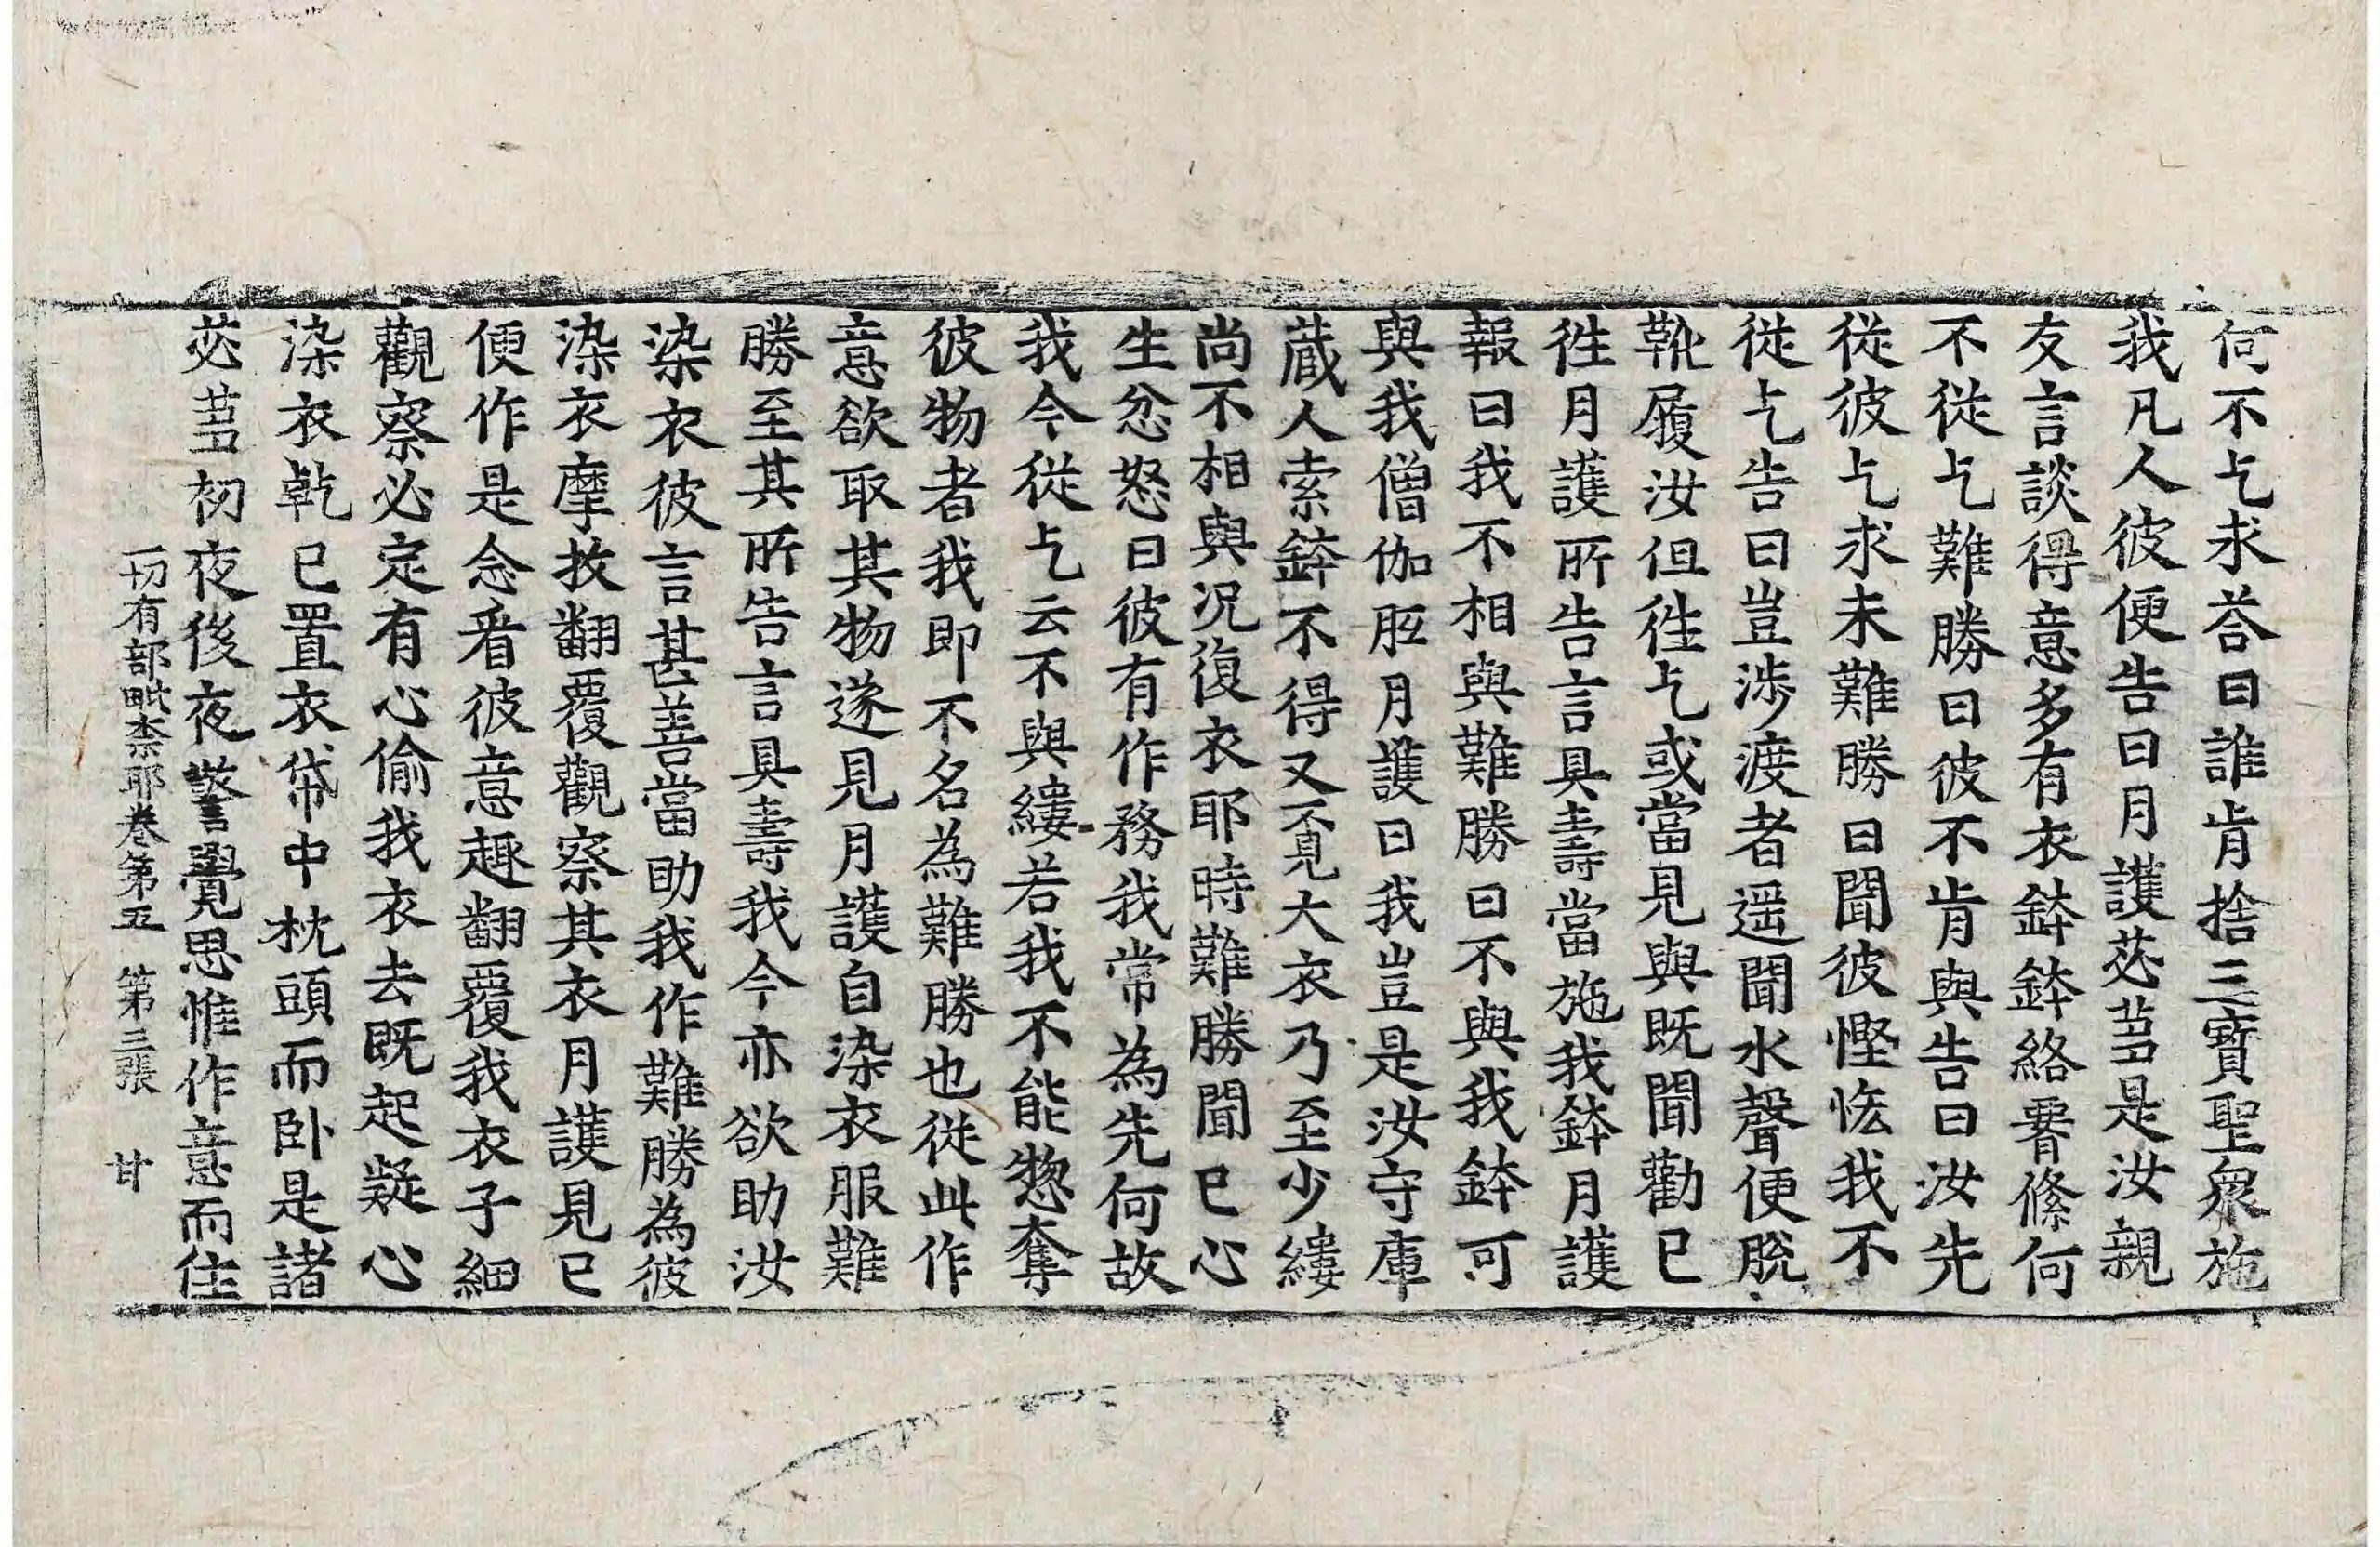 何不乞求荅曰誰肯捨三寶聖衆施
我凡人彼便告曰月護苾芻是汝親
友言談得意多有衣鉢鉢絡署絛何
不從乞難勝曰彼不肯與告曰汝先
從彼乞求未難勝曰聞彼慳悋我不
從乞告曰豈涉渡者遥聞水聲便脫
靴履汝但徃乞或當見與既聞勸已
徃月護所告言具壽當施我鉢月護
報曰我不相與難勝曰不與我鉢可
與我僧伽胝月護曰我豈是汝守庫
蔵人索鉢不得又覔大衣乃至少縷
尚不相與况復衣耶時難勝聞已心
生忿怒曰彼有作務我常為先何故
我今從乞云不與縷若我不能惣奪
彼物者我即不名為難勝也從此作
意欲取其物遂見月護自染衣服難
勝至其所告言具壽我今亦欲助汝
染衣彼言甚善當助我作難勝為彼
染衣摩挍翻覆觀察其衣月護見已
便作是念看彼意趣翻覆我衣子細
觀察必定有心偷我衣去既起疑心
染衣乾已置衣帒中枕頭而卧是諸
苾芻初夜後夜警覺思惟作意而住
一切有部毗柰耶卷第五 第三張 甘